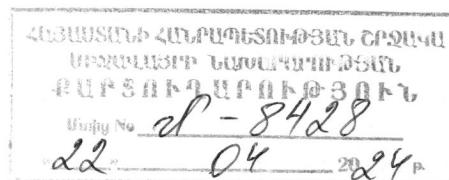 ՀԱՅԱՍՏԱՆԻ ՀԱՆՐԱՊԵՏՈՒԹՅԱՆ ՇՐՋԱԿԱ
ՄԻՋԱՎԱՅՐԻ ՆԱԽԱՐԱՐՈՒԹՅԱՆ
ՔԱՐՏՈՒՂԱՐՈՒԹՅՈՒՆ
Մտից No Մ-8428
"22" 04 2024 թ.